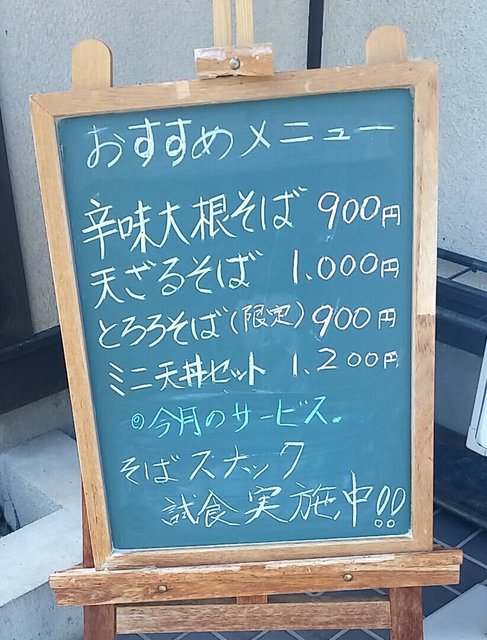 おすすめメニュー
辛味大根そば 900円
天ざるそば 1.000円
とろろそば(限定) 900円
ミニ天丼セット 1.200円
◎今月のサービス。
そばスナック
試食実施中!!